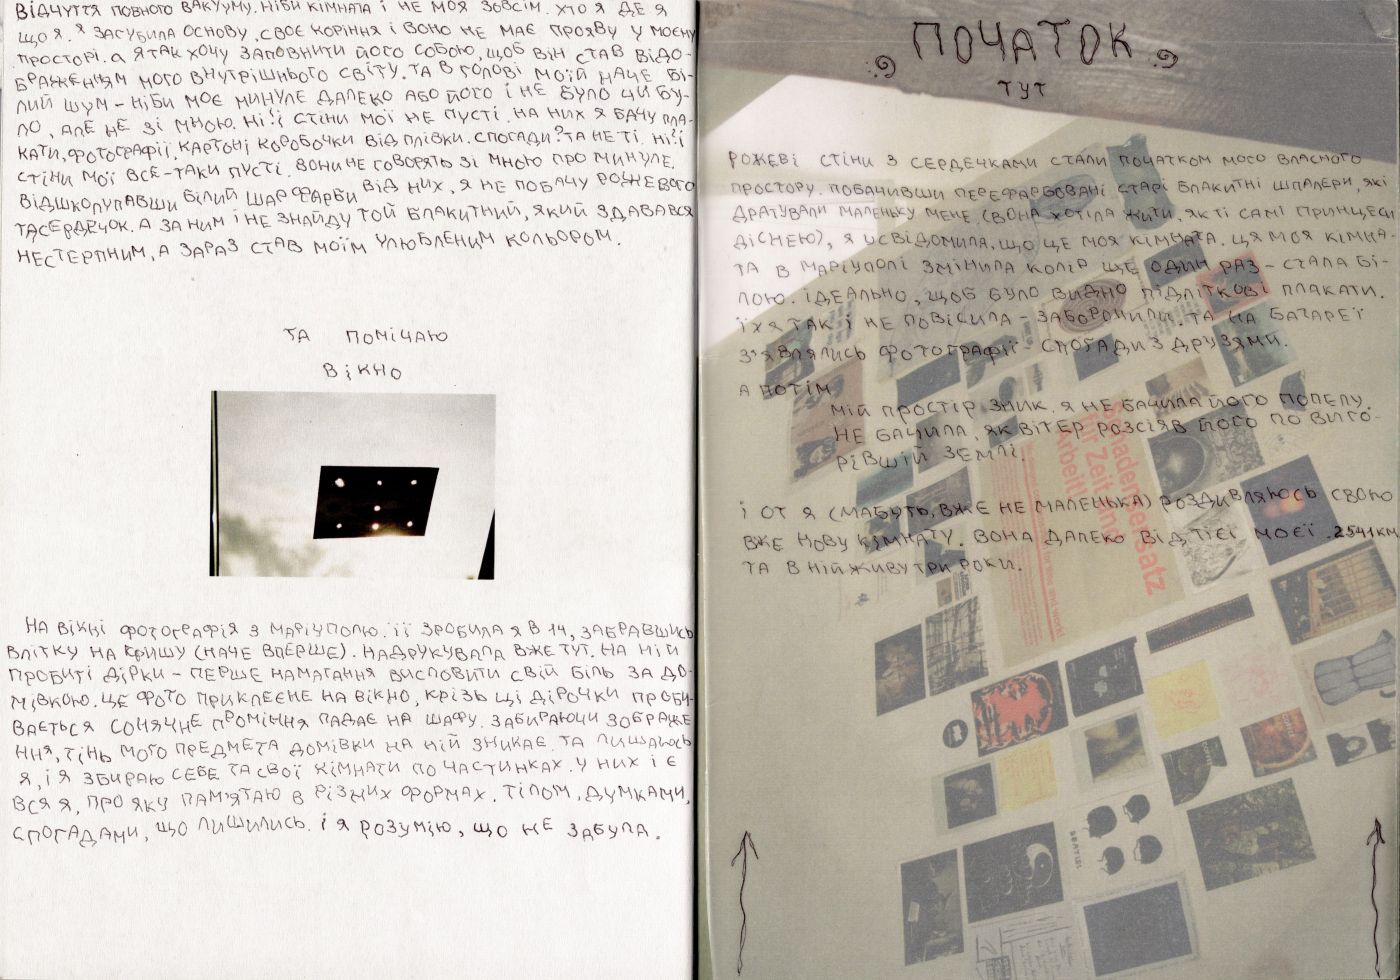 ВІДЧУТТЯ ПОВНОГО ВАКУУМУ. НІБИ КІМНАТА І НЕ МОЯ ЗОВСІМ. ХТО Я ДЕ Я
ЩО Я. Я ЗАГУБИЛА ОСНОВУ, СВОЄ КОРІННЯ І ВОНО НЕ МАЄ ПРОЯВУ У МОЄМУ
ПРОСТОРІ. А Я ТАК ХОЧУ ЗАПОВНИТИ ЙОГО СОБОЮ, ЩОБ ВІН СТАВ ВІДО-
БРАЖЕННЯМ МОГО ВНУТРІШНЬОГО СВІТУ. ТА В ГОЛОВІ МОЇЙ НАЧЕ БІ-
ЛИЙ ШУМ – НІБИ МОЄ МИНУЛЕ ДАЛЕКО АБО ЙОГО І НЕ БУЛО ЧИ БУ-
ЛО, АЛЕ НЕ ЗІ МНОЮ. НІ! Ї СТІНИ МОЇ НЕ ПУСТІ. НА НИХ Я БАЧУ ПЛА-
КАТИ, ФОТОГРАФІЇ, КАРТОНІ КОРОБОЧКИ ВІД ПЛІВКИ. СПОГАДИ? ТА НЕ ТІ. НІ! Ї
СТІНИ МОЇ ВСЕ-ТАКИ ПУСТІ. ВОНИ НЕ ГОВОРЯТЬ ЗІ МНОЮ ПРО МИНУЛЕ.
ВІДШКОЛУПАВШИ БІЛИЙ ШАР ФАРБИ ВІД НИХ, Я НЕ ПОБАЧУ РОЖЕВОГО
ТА СЕРДЕЧОК. А ЗА НИМ І НЕ ЗНАЙДУ ТОЙ БЛАКИТНИЙ, ЯКИЙ ЗДАВАВСЯ
НЕСТЕРПНИМ, А ЗАРАЗ СТАВ МОЇМ УЛЮБЛЕНИМ КОЛЬОРОМ.
ТА ПОМІЧАЮ
ВІКНО
НА ВІКНІ ФОТОГРАФІЯ З МАРІУПОЛЮ. ЇЇ ЗРОБИЛА Я В 14, ЗАБРАВШИСЬ
ВЛІТКУ НА КРИШУ (НАЧЕ ВПЕРШЕ). НАДРУКУВАЛА ВЖЕ ТУТ. НА НІЙ
ПРОБИТІ ДІРКИ – ПЕРШЕ НАМАГАННЯ ВИСЛОВИТИ СВІЙ БІЛЬ ЗА ДО-
МІВКОЮ. ЦЕ ФОТО ПРИКЛЕЄНЕ НА ВІКНО, КРІЗЬ ЦІ ДІРОЧКИ ПРОБИ-
ВАЄТЬСЯ СОНЯЧНЕ ПРОМІННЯ ПАДАЄ НА ШАФУ. ЗАБИРАЮЧИ ЗОБРАЖЕ
ННЯ, ТІНЬ МОГО ПРЕДМЕТА ДОМІВКИ НА НІЙ ЗНИКАЄ. ТА ЛИШАЮСЬ
Я, І Я ЗБИРАЮ СЕБЕ ТА СВОЇ КІМНАТИ ПО ЧАСТИНКАХ. У НИХ І Є
ВСЯ Я, ПРО ЯКУ ПАМ'ЯТАЮ В РІЗНИХ ФОРМАХ. ТІЛОМ, ДУМКАМИ,
СПОГАДАМИ, ЩО ЛИШИЛИСЬ. І Я РОЗУМІЮ, ЩО НЕ ЗАБУЛА.
ПОЧАТОК
ТУТ
РОЖЕВІ СТІНИ З СЕРДЕЧКАМИ СТАЛИ ПОЧАТКОМ МОГО ВЛАСНОГО
ПРОСТОРУ. ПОБАЧИВШИ ПЕРЕФАРБОВАНІ СТАРІ БЛАКИТНІ ШПАЛЕРИ, ЯКІ
ДРАТУВАЛИ МАЛЕНЬКУ МЕНЕ (ВОНА ХОТІЛА ЖИТИ, ЯК ТІ САМІ ПРИНЦЕСИ
ДІСНЕЮ), Я УСВІДОМИЛА, ЩО ЦЕ МОЯ КІМНАТА. ЦЯ МОЯ КІМНА-
ТА В МАРІУПОЛІ ЗМІНИЛА КОЛІР ЩЕ ОДИН РАЗ – СТАЛА БІ-
ЛОЮ. ІДЕАЛЬНО, ЩОБ БУЛО ВИДНО ПІДЛІТКОВІ ПЛАКАТИ.
ЇХ Я ТАК І НЕ ПОВІСИЛА – ЗАБОРОНИЛИ. ТА НА БАТАРЕЇ
З'ЯВЛЯЛИСЬ ФОТОГРАФІЇ – СПОГАДИ З ДРУЗЯМИ.
А ПОТІМ
МІЙ ПРОСТІР ЗНИК. Я НЕ БАЧИЛА ЙОГО ПОПЕЛУ.
НЕ БАЧИЛА, ЯК ВІТЕР РОЗСІЯВ ЙОГО ПО ВИГО-
РІВШІЙ ЗЕМЛІ.
І ОТ Я (МАБУТЬ, ВЖЕ НЕ МАЛЕНЬКА) РОЗДИВЛЯЮСЬ СВОЮ
ВЖЕ НОВУ КІМНАТУ. ВОНА ДАЛЕКО ВІД ТІЄЇ МОЄЇ. 2541 КМ
ТА В НІЙ ЖИВУ ТРИ РОКИ.
Schadenersatz
für Zeit und
Arbeit!